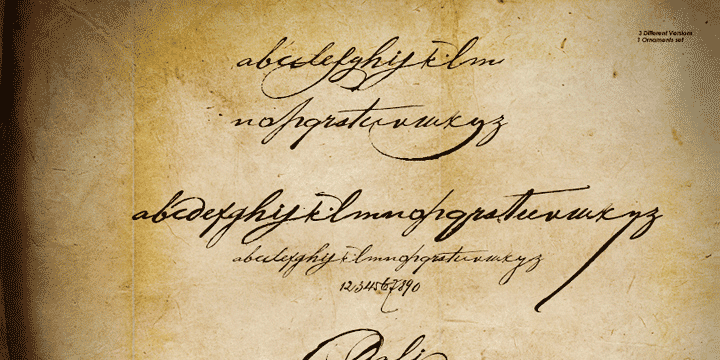 3 Different Versions
1 Ornaments set
abcdefghijklm
nopqrstuvwxyz
abcdefghijklmnopqrstuvwxyz
abcdefghijklmnopqrstuvwxyz
1234567890